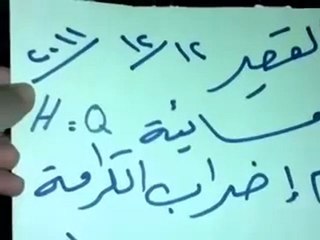 القصير ١٢/١٢/٢٠١١
مسائية H:Q
إضراب الكرامة